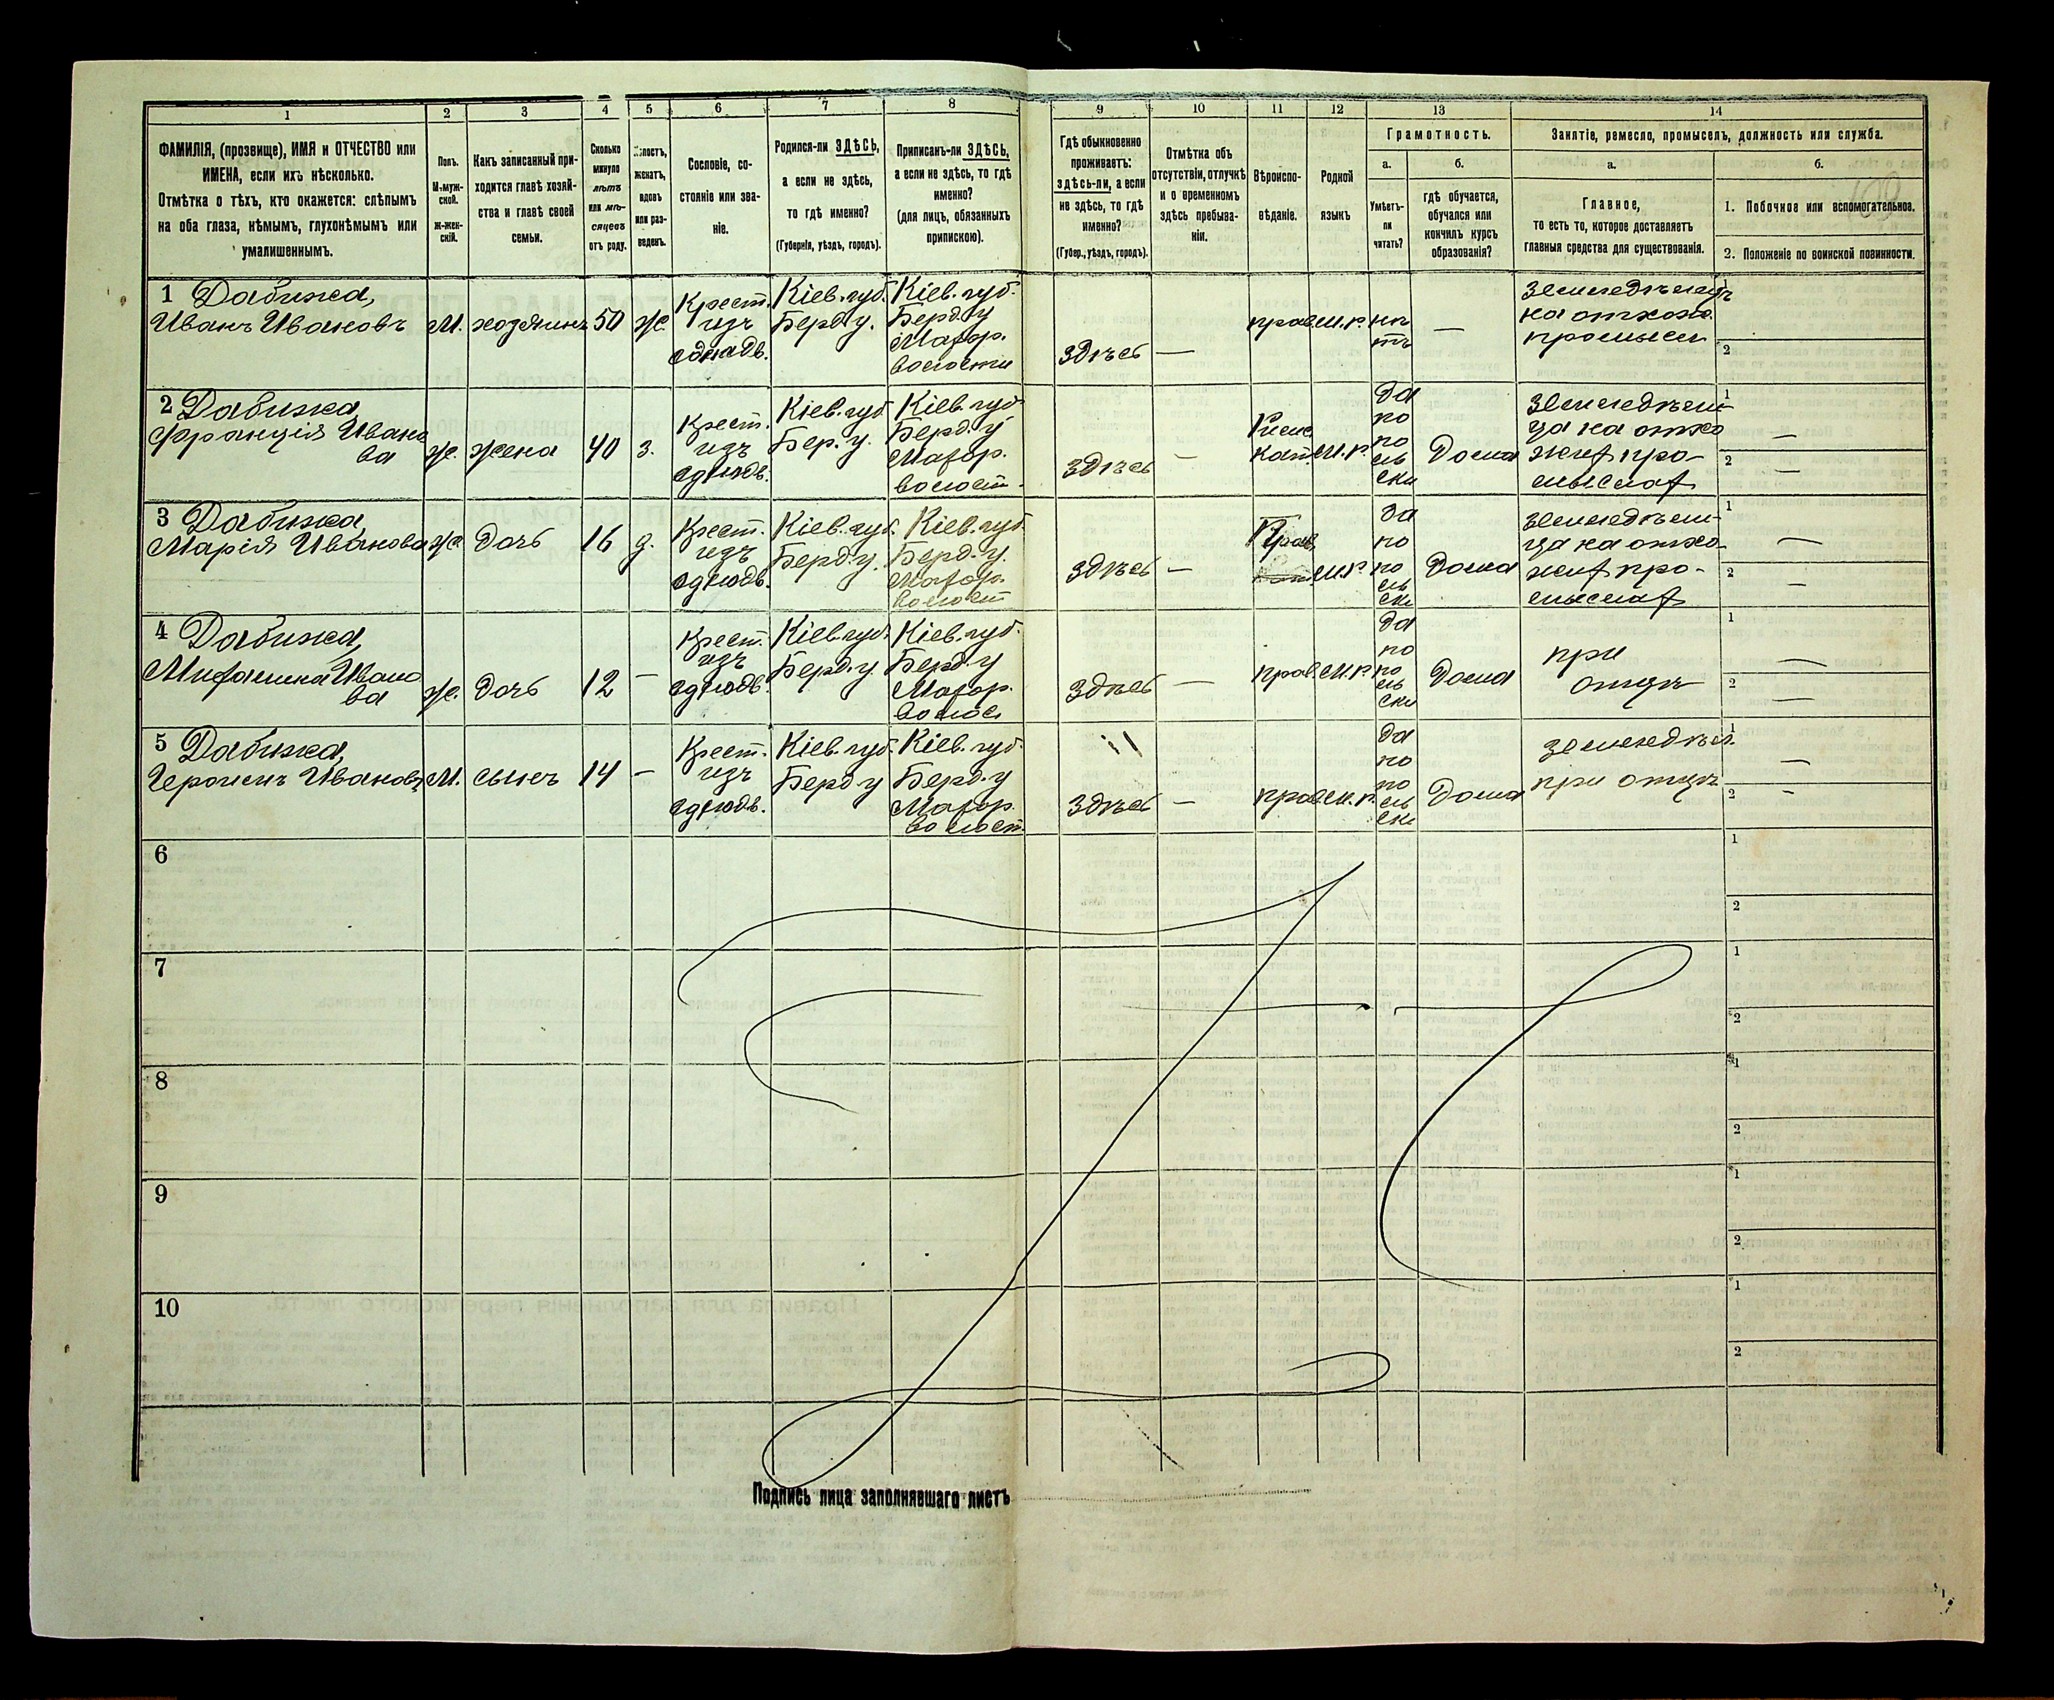 1 2 3 4 5 6 7 8 9 10 11 12 13 14
ФАМИЛІЯ, (прозвище), ИМЯ и ОТЧЕСТВО или
ИМЕНА, если ихъ нѣсколько.
Отмѣтка о тѣхъ, кто окажется: слѣпымъ
на оба глаза, нѣмымъ, глухонѣмымъ или
умалишеннымъ.
Полъ.
М-муж-
ской.
ж-жен-
скій.
Какъ записанный при-
ходится главѣ хозяй-
ства и главѣ своей
семьи.
Сколько
минуло
лѣтъ
или мѣ-
сяцевъ
отъ роду.
Холостъ,
женатъ,
вдовъ
или раз-
веденъ.
Сословіе, со-
стояніе или зва-
ніе.
Родился-ли ЗДѢСЬ,
а если не здѣсь,
то гдѣ именно?
(Губернія, уѣздъ, городъ).
Приписанъ-ли ЗДѢСЬ,
а если не здѣсь, то гдѣ
именно?
(для лицъ, обязанныхъ
припискою).
Гдѣ обыкновенно
проживаетъ:
здѣсь-ли, а если
не здѣсь, то гдѣ
именно?
(Губер., уѣздъ, городъ).
Отмѣтка объ
отсутствіи, отлучкѣ
и о временномъ
здѣсь пребыва-
ніи.
Вѣроиспо-
вѣданіе.
Родной
языкъ
Грамотность.
а.
Умѣетъ-
ли
читать?
б.
гдѣ обучается,
обучался или
кончилъ курсъ
образованія?
Занятіе, ремесло, промыселъ, должность или служба.
а.
Главное,
то есть то, которое доставляетъ
главныя средства для существованія.
б.
1. Побочное или вспомогательное.
2. Положеніе по воинской повинности.
1 Дабижа,
Иванъ Ивановъ
М.
хозяинъ
50
ж.
Крест.
изъ
однодв.
Кіев. губ.
Берд. у.
Кіев. губ.
Берд. у
Махор.
волости
здѣсь
—
прав.
м.р.
нѣ
тъ
—
на отхож.
промысл
2
2 Дабижа,
Иванo
ва
ж.
жена
40
з.
Крест.
изъ
однодв.
Кіев. губ
Бер. у.
Кіев. губ
Берд. у
Махор.
волост.
здѣсь
—
Римс
кат.
м.р.
да
по
по
ль
ски
Дома
ца на отхо
жих про-
мыслах
1 —
2 —
3 Дабижа,
Марія Иванова
ж.
дочь
16
д.
Крест.
изъ
однодв.
Кіев. губ.
Берд. у.
Кіев. губ.
Берд. у.
Махор.
волост
здѣсь
—
Прав.
м.р.
да
по
по
ль
ски
Дома
ца на отхо
жих про-
мыслах
1 —
2 —
4 Дабижа,
Ивано
ва
ж.
дочь
12
—
Крест.
изъ
однодв.
Кіев. губ.
Берд. у.
Кіев. губ.
Берд. у
Махор.
волос
здѣсь
—
прав.
м.р.
да
по
по
ль
ски
Дома
при
отцѣ
1 —
2 —
5 Дабижа,
Ивановъ
М.
сынъ
14
—
Крест.
изъ
однодв.
Кіев. губ.
Берд у
Кіев. губ.
Берд. у
Махор.
волост.
здѣсь
—
прав.
м.р.
да
по
по
ль
ски
Дома
земледѣл.
при отцѣ
1 —
2 —
6
1
2
7
1
2
8
1
2
9
1
2
10
1
2
Подпись лица заполнявшаго листъ